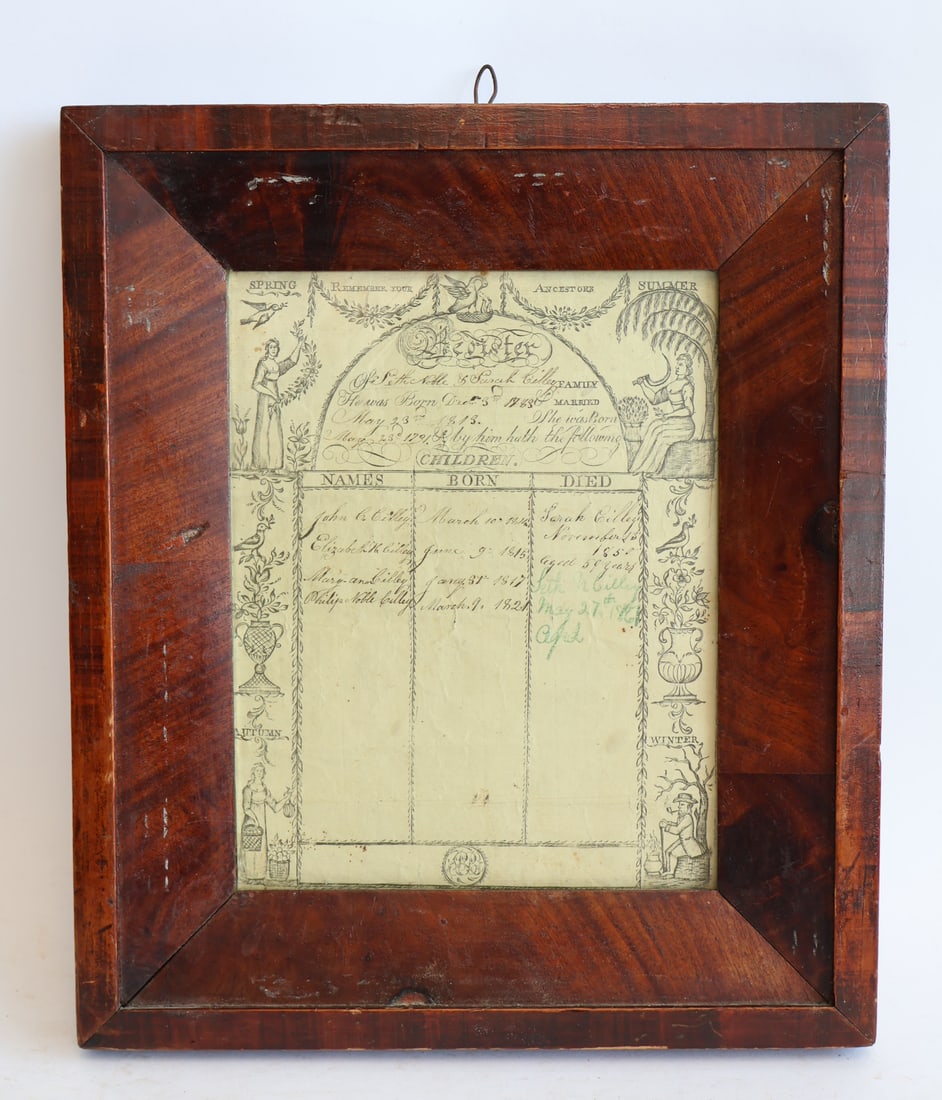 SPRING REMEMBER YOUR ANCESTORS SUMMER
Register
Of Seth Noble & Sarah Cilley FAMILY
He was Born Decr 3d 1788 MARRIED
May 23rd 1813. She was Born
May 23d 1791 & by him hath the following
CHILDREN.
NAMES BORN DIED
John C Cilley March 10th Sarah Cilley
November
Elizabeth Cilley June 9th 1815 185
Aged 59 years
Mary ann Cilley Jany 31st 1817 Seth N Cilley
Philip Noble Cilley March 9. 1821 May 27th
Aged
AUTUMN WINTER